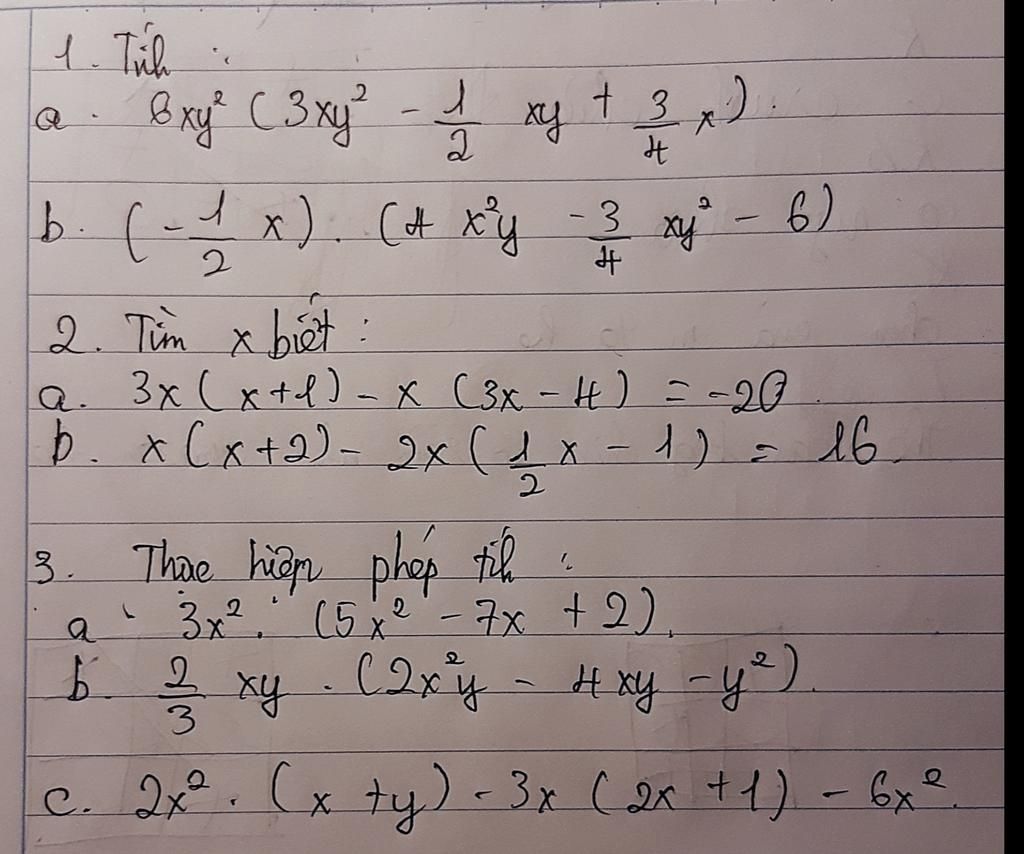 1. Tính :
a. 8xy² (3xy² - 1/2 xy + 3/4 x).
b. (-1/2 x) . (4 x²y - 3/4 xy² - 6)
2. Tìm x biết :
a. 3x (x+1) - x (3x - 4) = -20.
b. x (x+2) - 2x (1/2 x - 1) = 16.
3. Thực hiện phép tính :
a. 3x² . (5x² - 7x + 2).
b. 2/3 xy . (2x²y - 4xy - y²).
c. 2x² . (x + y) - 3x (2x + 1) - 6x².